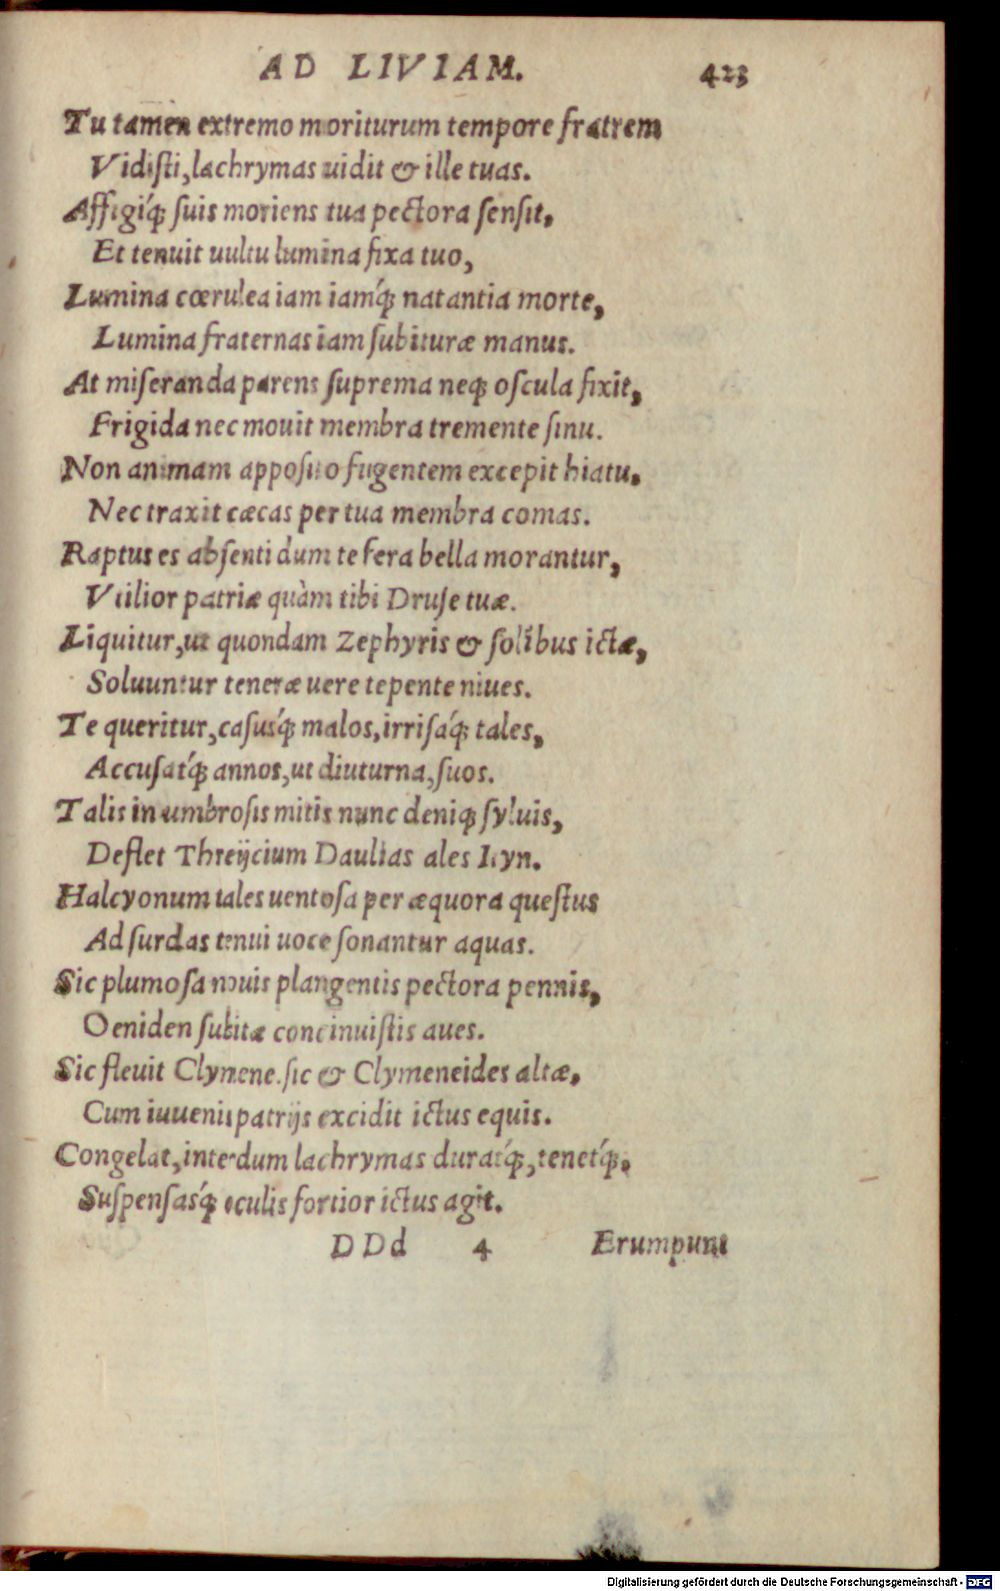 AD LIVIAM. 423
Tu tamen extremo moriturum tempore fratrem
Vidiſti, lachrymas uidit & ille tuas.
Affigiq́ꝫ ſuis moriens tua pectora ſenſit,
Et tenuit uultu lumina fixa tuo,
Lumina cœrulea iam iamq́ꝫ natantia morte,
Lumina fraternas iam ſubituræ manus.
At miſeranda parens ſuprema neqꝫ oſcula fixit,
Frigida nec mouit membra tremente ſinu.
Non animam appoſito fugentem excepit hiatu,
Nec traxit cæcas per tua membra comas.
Raptus es abſenti dum te fera bella morantur,
Vtilior patriæ quàm tibi Druſe tuæ.
Liquitur, ut quondam Zephyris & ſolibus ictæ,
Soluuntur teneræ uere tepente niues.
Te queritur, caſusq́ꝫ malos, irriſaq́ꝫ tales,
Accuſatq́ꝫ annos, ut diuturna, ſuos.
Talis in umbroſis mitis nunc deniqꝫ ſyluis,
Deflet Threijcium Daulias ales Ityn.
Halcyonum tales uentoſa per æquora queſtus
Ad ſurdas tenui uoce ſonantur aquas.
Sic plumoſa nouis plangentis pectora pennis,
Oeniden ſubitæ concinuiſtis aues.
Sic fleuit Clymene. ſic & Clymeneides altæ,
Cum iuuenis patrijs excidit ictus equis.
Congelat, interdum lachrymas duratq́ꝫ, tenetq́ꝫ,
Suſpenſasq́ꝫ oculis fortior ictus agit.
DDd 4 Erumpunt
Digitalisierung gefördert durch die Deutsche Forschungsgemeinschaft - DFG